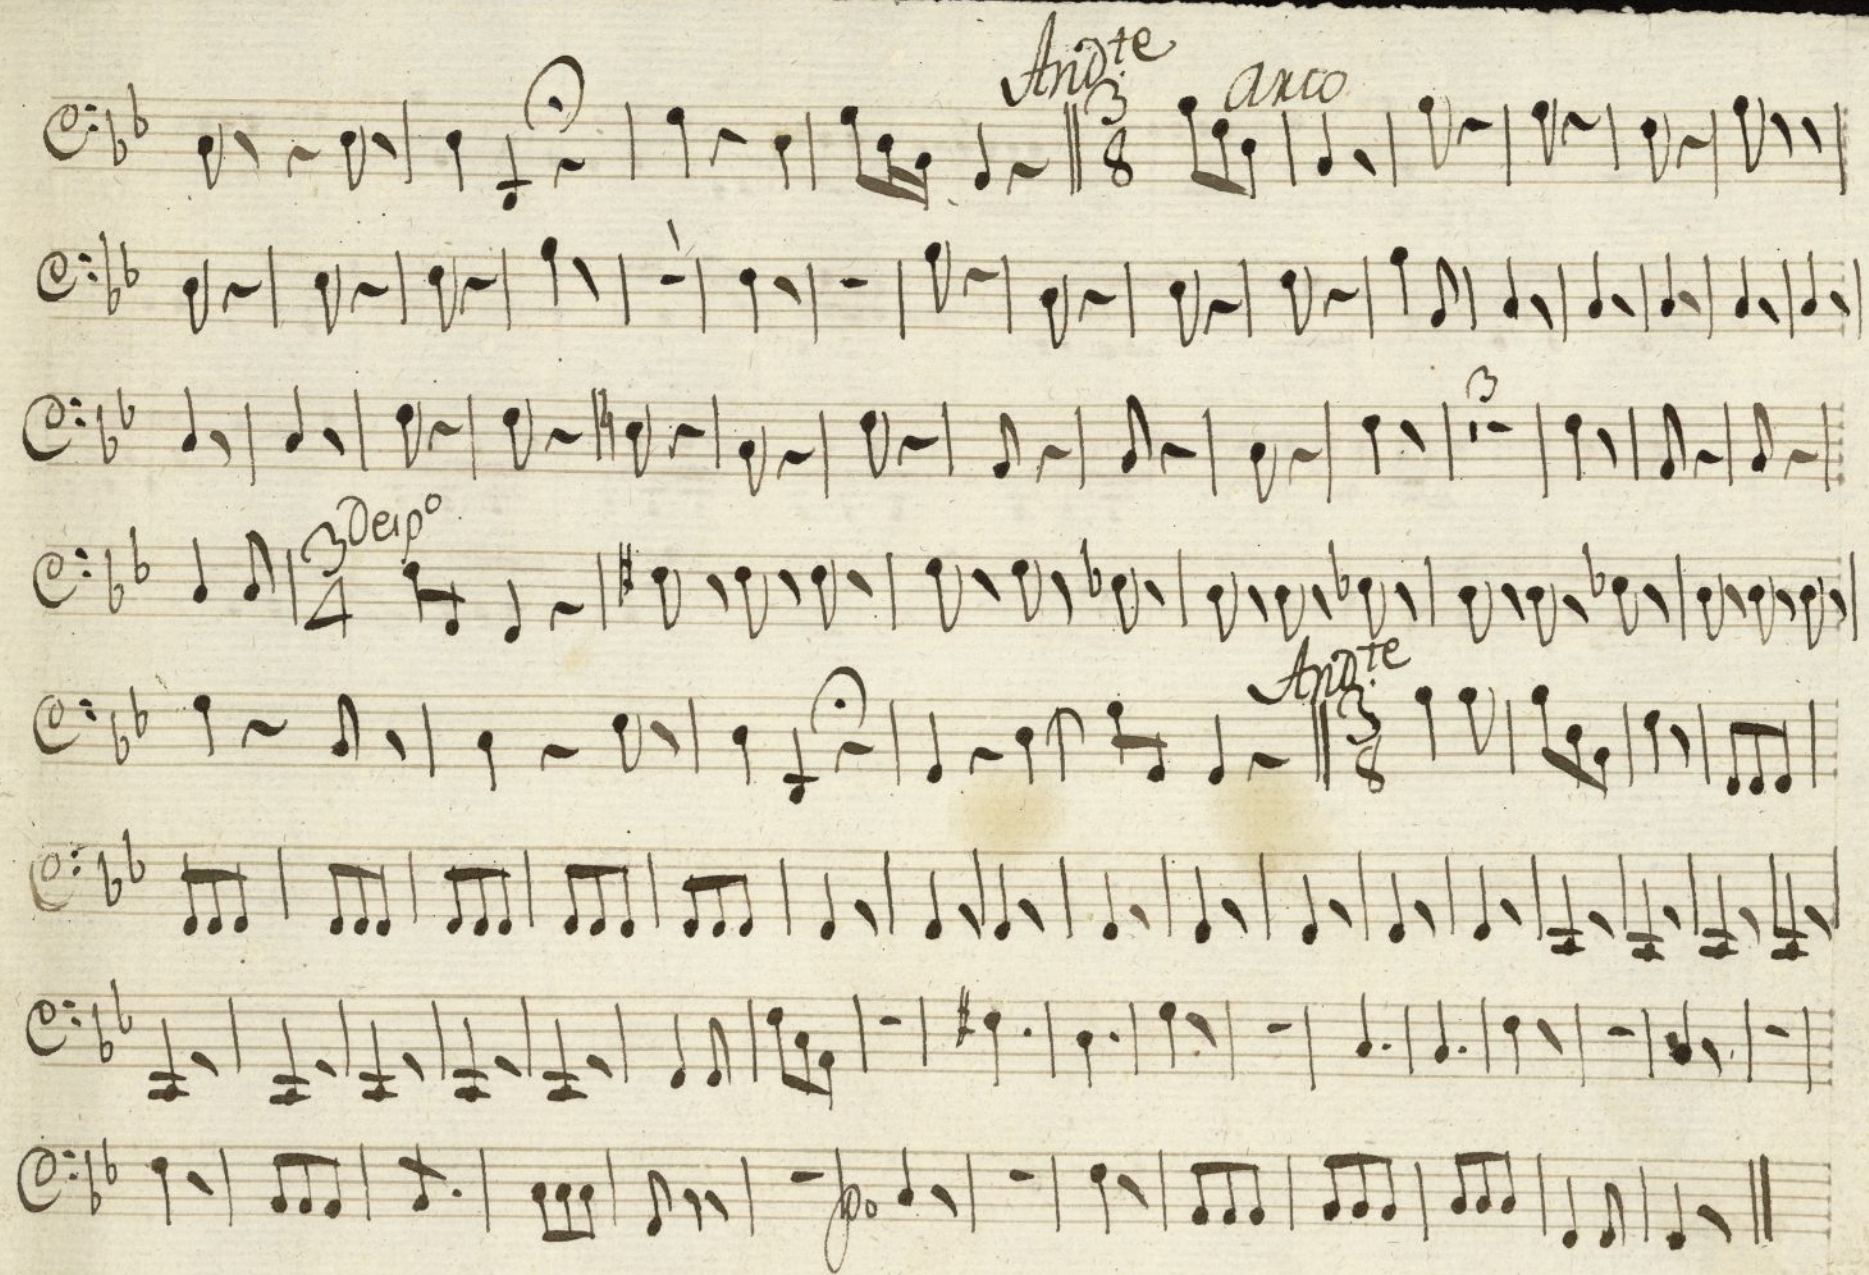 And.te arco
3
8
3
3 Deipo
4
And.te
3
8
po